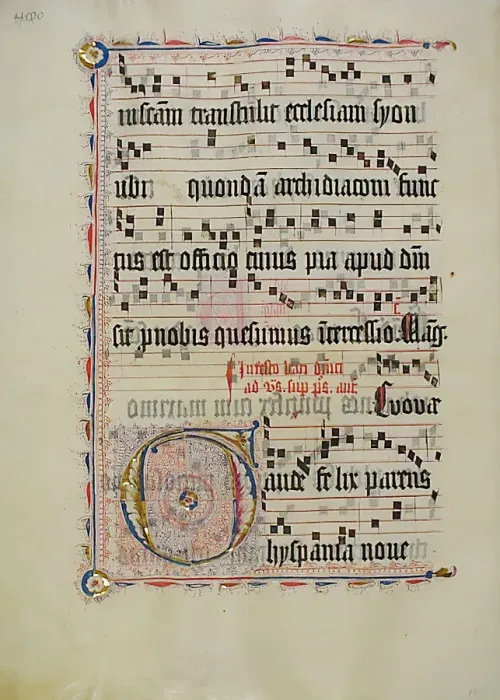 iuscam transtulit ecclesiam syon
ubi quondã archidiaconi func
tus est officio cuius pia apud dm̃
sit pnobis quesumus ĩtercessio. Mag̃.
In festo beati dñici
ad vs. sup ps. ant
Euouae
Gaude felix parens
hyspania noue